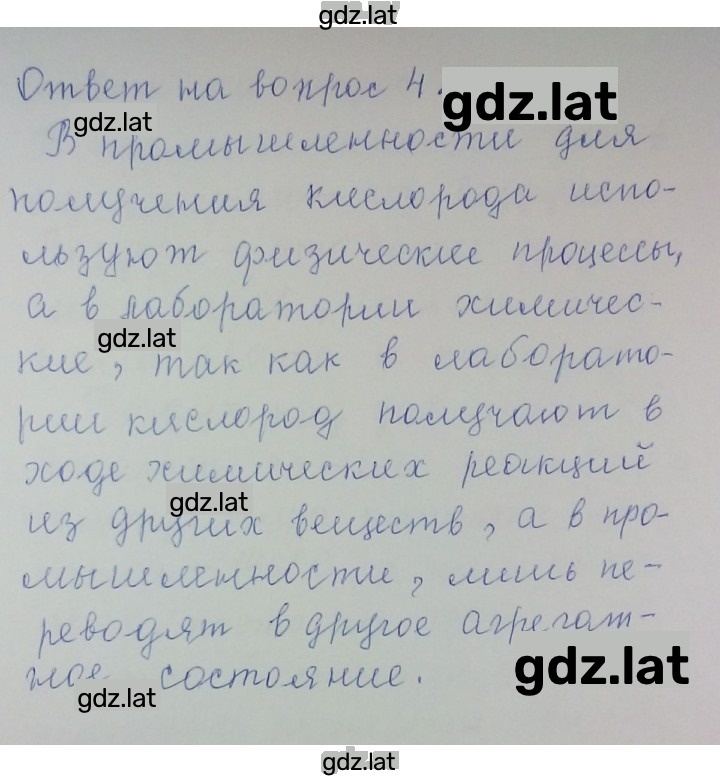 gdz.lat
Ответ на вопрос 4.
gdz.lat
gdz.lat
В промышленности для
получения кислорода испо-
льзуют физические процессы,
а в лаборатории химичес-
gdz.lat
кие, так как в лаборато-
рии кислород получают в
ходе химических реакций
gdz.lat
из других веществ, а в про-
мышленности, лишь пе-
реводят в другое агрегат-
gdz.lat
ное состояние.
gdz.lat
gdz.lat